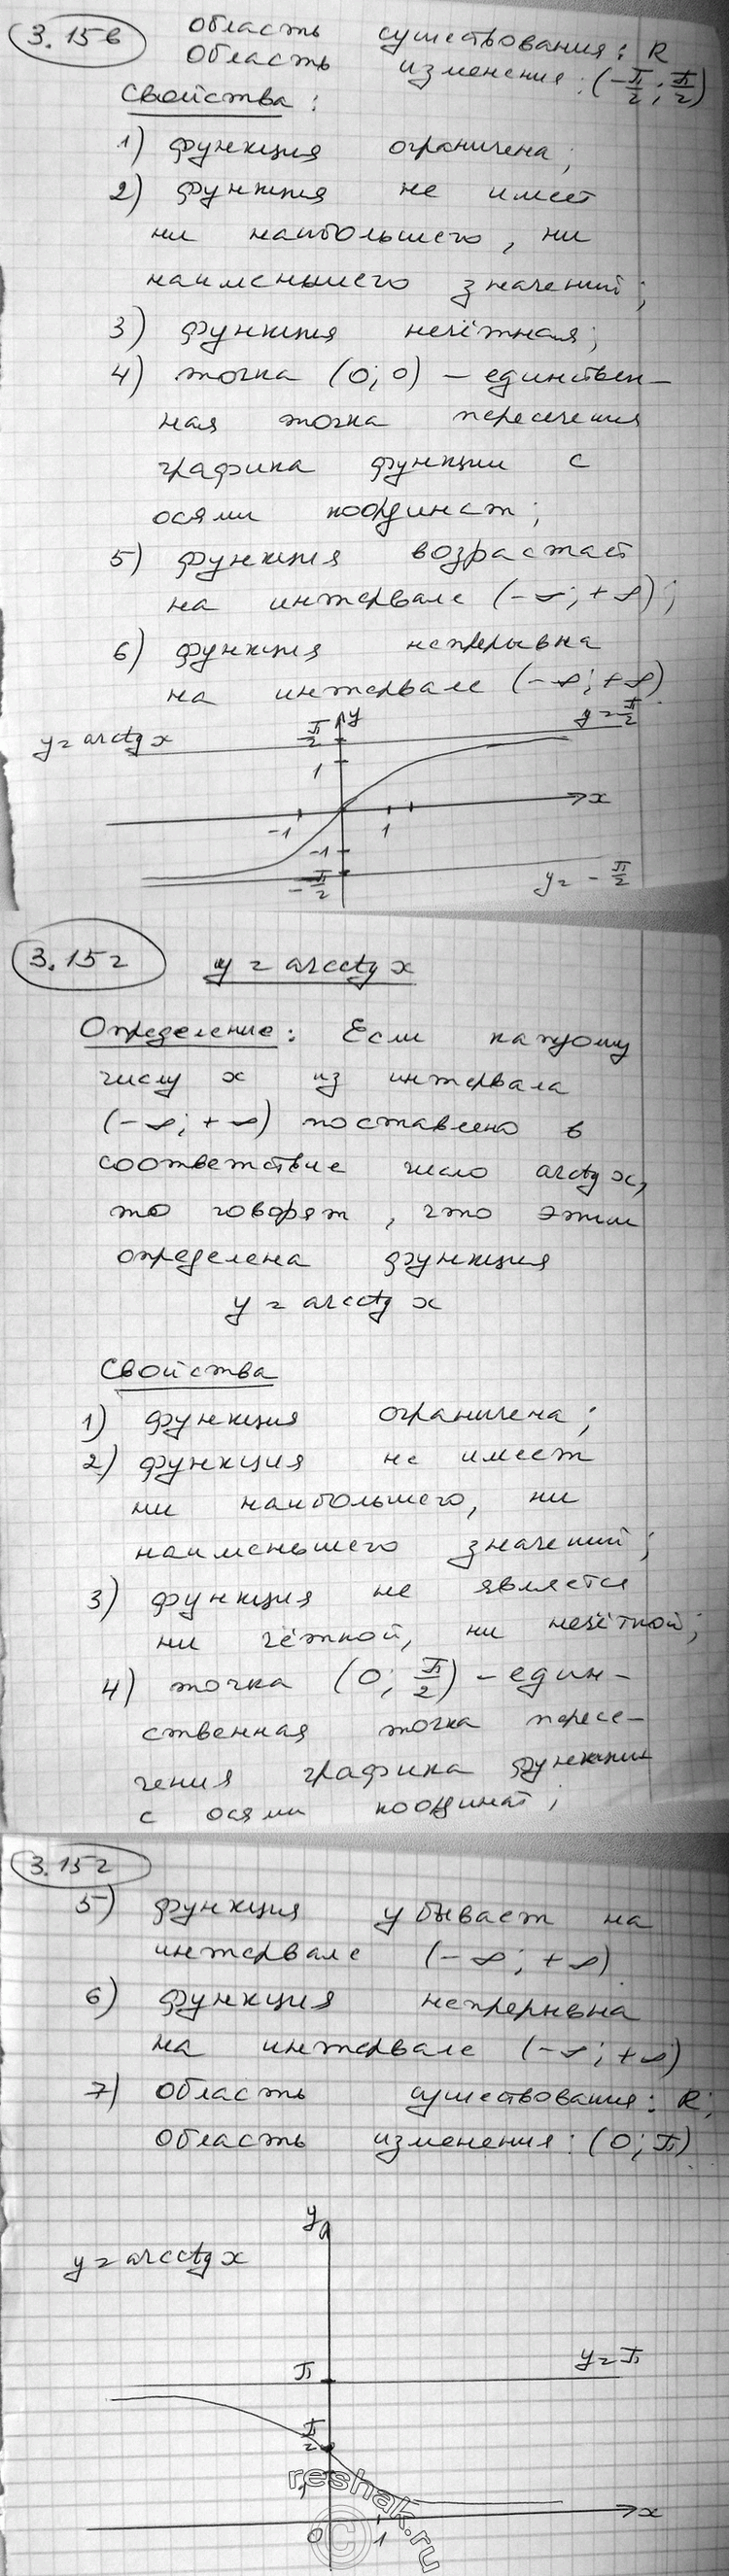 3.15в
область существования: R
область изменения: (-π/2; π/2)
Свойства:
1) функция ограничена;
2) функция не имеет
ни наибольшего, ни
наименьшего значений;
3) функция нечётная;
4) точка (0; 0) – единствен–
ная точка пересечения
графика функции с
осями координат;
5) функция возрастает
на интервале (-∞; +∞);
6) функция непрерывна
на интервале (-∞; +∞)
y = arctg x
π/2
y
y = π/2
1
x
-1
1
-1
-π/2
y = -π/2
3.15г
y = arcctg x
Определение: Если каждому
числу x из интервала
(-∞; +∞) поставлено в
соответствие число arcctg x,
то говорят, что этим
определена функция
y = arcctg x
Свойства
1) функция ограничена;
2) функция не имеет
ни наибольшего, ни
наименьшего значений;
3) функция не является
ни чётной, ни нечётной;
4) точка (0; π/2) – един–
ственная точка пересе–
чения графика функции
с осями координат;
3.15г
5) функция убывает на
интервале (-∞; +∞)
6) функция непрерывна
на интервале (-∞; +∞)
7) область существования: R;
область изменения: (0; π)
y
y = arcctg x
π
y = π
π/2
1
reshak.ru
©
x
0
1